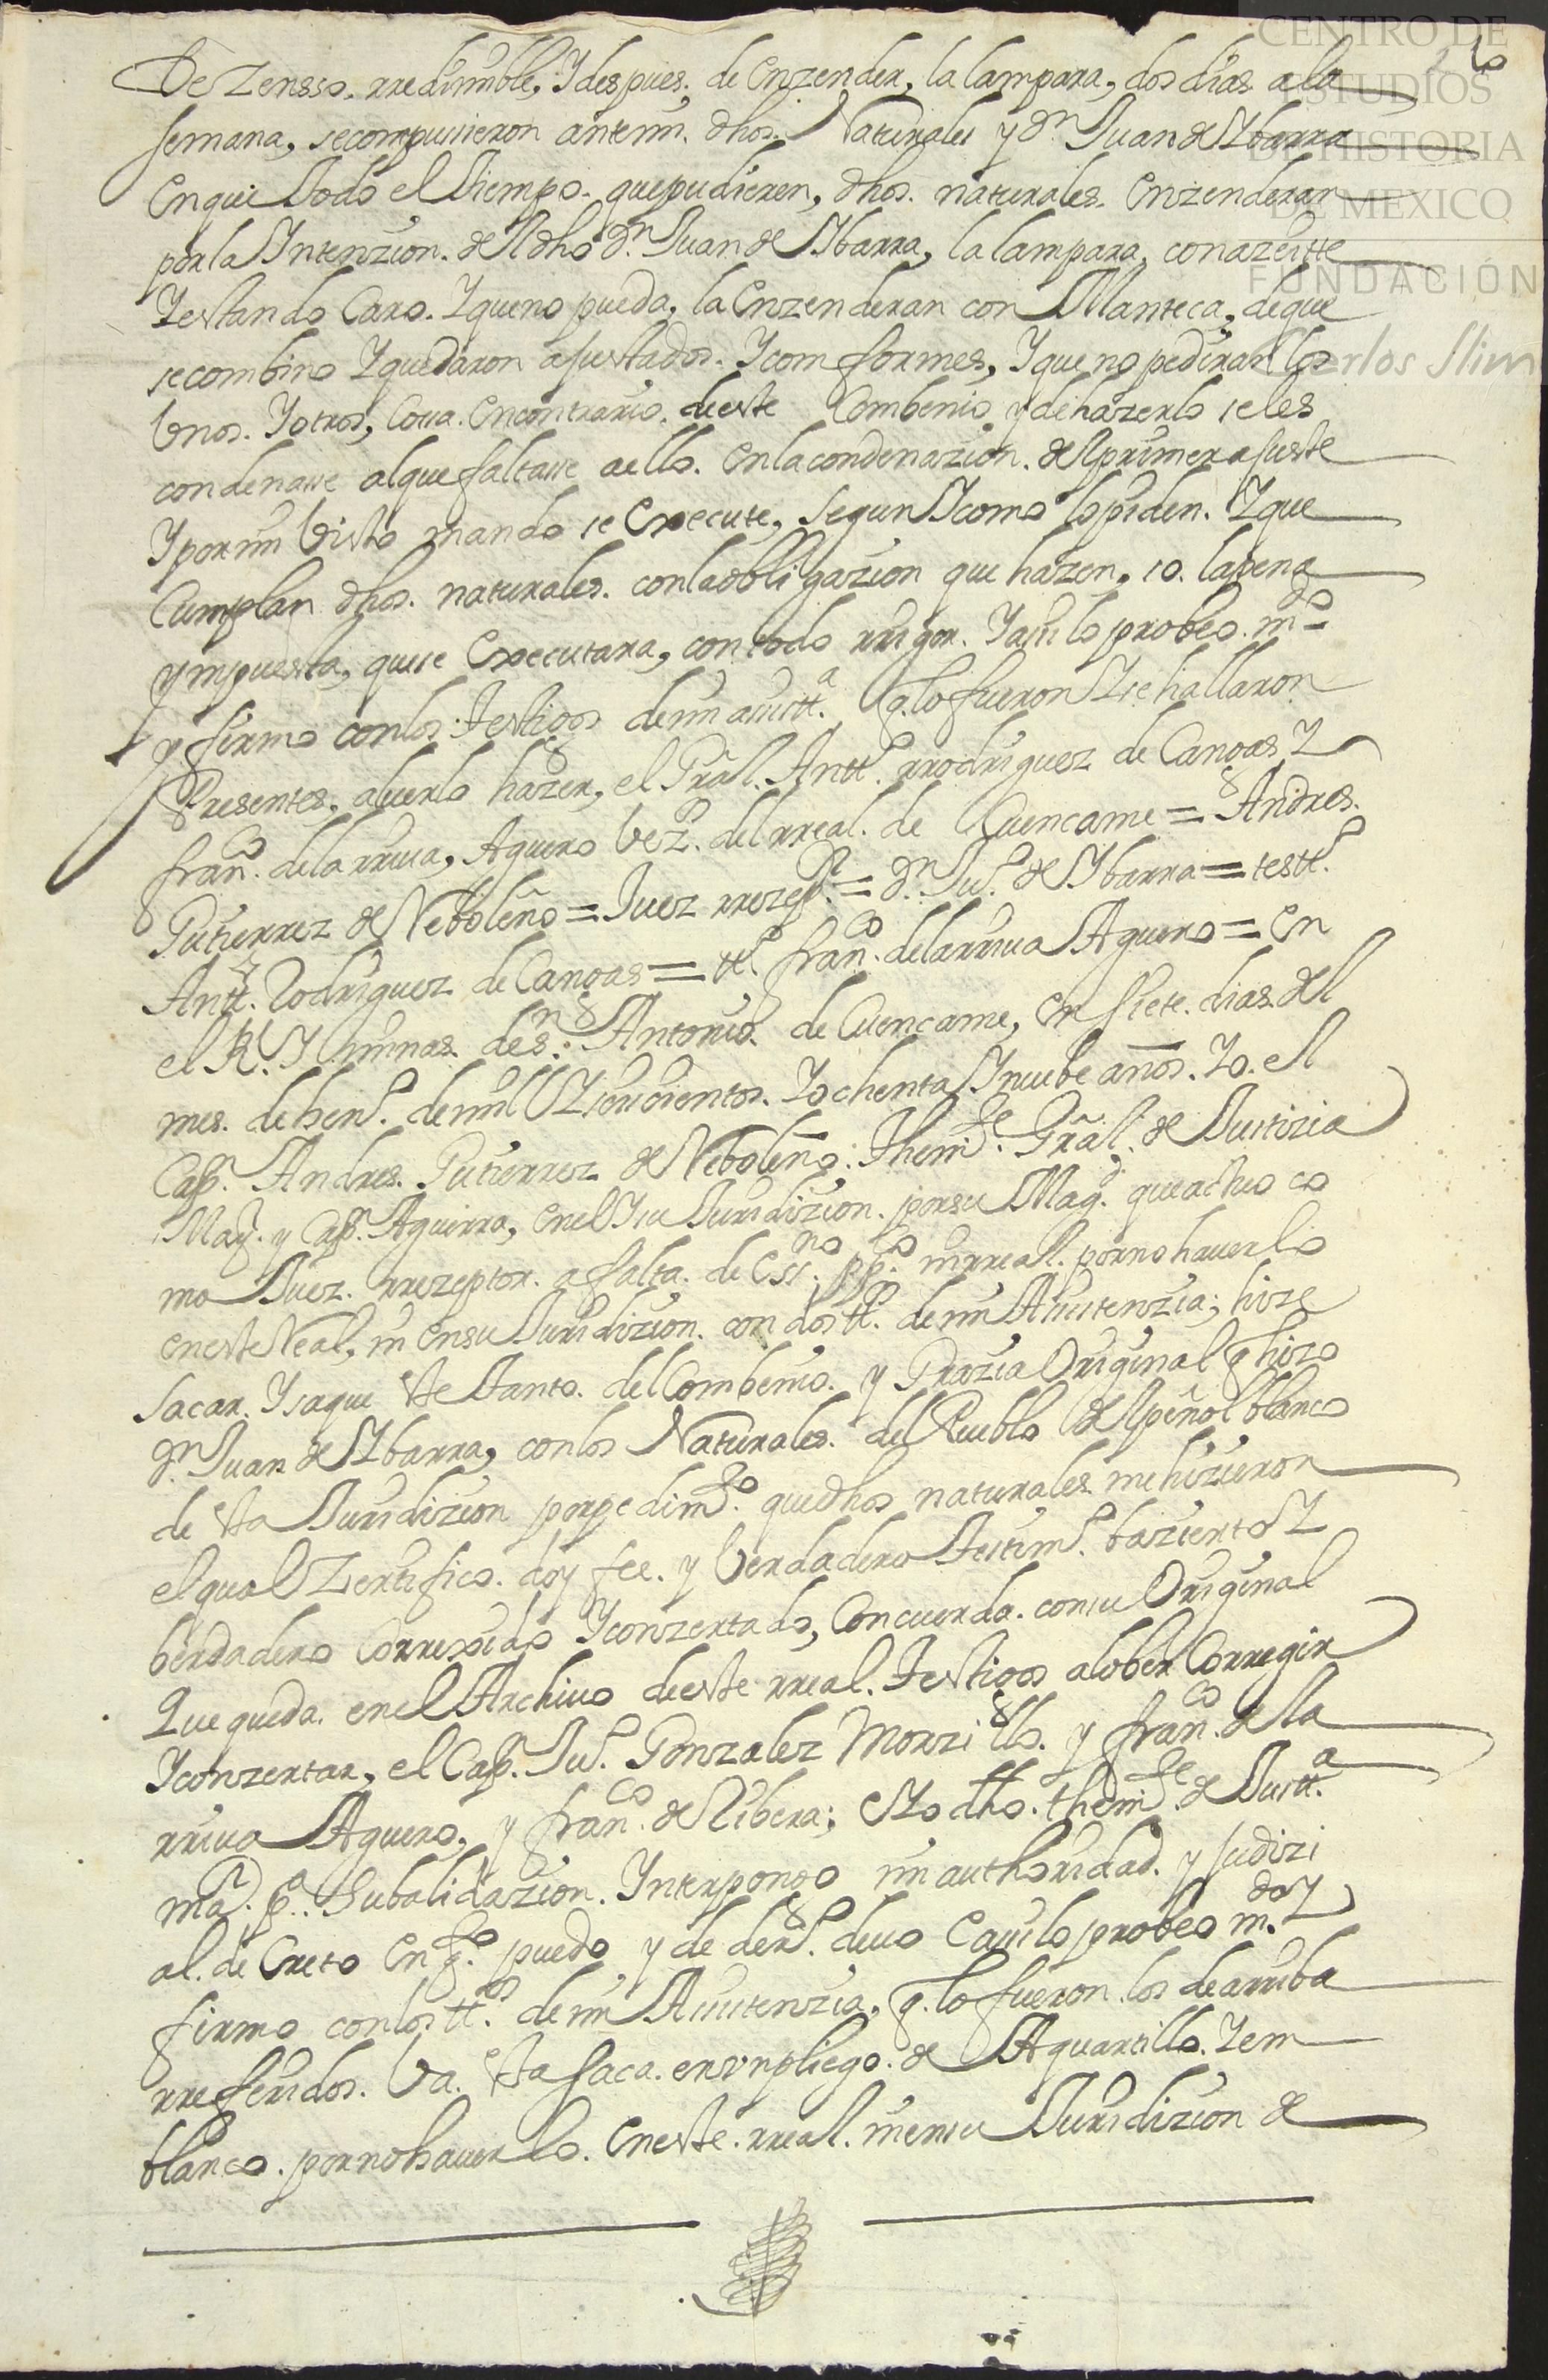 CENTRO DE
ESTUDIOS
DE HISTORIA
DE MEXICO
FUNDACIÓN
Carlos Slim
De Zensso. rredimible, Y despues. de Enzender, la lampara, dos dias a la
semana, se compussieron ante mi. dhos. Naturales y Dn Juan de Ybarra
En que todo el tiempo. que pudieren, dhos. naturales. Enzenderan
por la Yntenzion. del dho Dn. Juan de Ybarra, la lampara, con azeitte
Y estando Caro. Y que no pueda, la Enzenderan con Manteca, de que
se combino Y quedaron ajustados. Y comformes, Y que no pediran los
Unos. Y otros, Cosa. En contrario. de este Combenio y de hazerlo se les
condenasse al que faltasse a ello. En la condenazion. del primer ajuste
Y por mi Visto mando se Execute, segun Y como lo piden. Y que
Cumplan dhos. naturales. con la obligazion que hazen, so. la pena
ympuesta, que se Executara, con todo rrigor. Y assi lo probeo. mdo=
y firmo con los Testigos de mi assitta. q. lo fueron Y se hallaron
Presentes, a verlo hazer, el Gral. Antto. rrodriguez de Cangas Y
franco. de la rriva, Aguero Vezo. del rreal. de Cuencame = Andres.
Gutierrez de Neboleño = Juez rrezepor. = Dn. Juo. de Ybarra = testto.
Antto. Rodriguez de Cangas = tto. franco. de la rriva Aguero = En
el Rl. Y minas de sn. Antonio. de Cuencame, En siete. dias del
mes. de heno. de mill Y seiscientos. Y ochenta Y nuebe años. Yo. el
Capn. Andres. Gutierrez de Neboleño: Thente. Gral. de Justizia
Mayr. y Capn. Aguirra, en el Y su Juridizion. por su Magd. que actuo co
mo Juez. rrezeptor. a falta. de Essno. ppco. ni rreal. por no haverlo
en este Real, ni en su Juridizion. con dos ttos. de mi Assistenzia; hize
sacar. Y saque este tanto. del Combenio. y Grazia Original q hizo
Dn. Juan de Ybarra, con los Naturales. del Pueblo del peñol blanco
de esta Juridizion por pedimto. que dhos naturales me hizieron
el qual Zertifico. doy fee. y Verdadero Testimo. ba zierto Y
berdadero Correxido Y conzertado, Concuerda. con su Original
Que queda. en el Archivo de este rreal. Testigos a lo ber Corregir
Y conzertar, el Capn. Juo. Gonzalez Morzillo. y franco. de la
rriva Aguero, y franco. de Ribera; E Yo dho. thente. de Justta.
mar. pa. su balidazion. Ynterpongo mi authoridad. y judizi
al. de Creto En qto. puedo y de dero. devo E assi lo probeo mdo. Y
firmo con los ttos. de mi Assistenzia, q. lo fueron los de arriba
rreferidos. Va. esta saca. en un pliego. de A quartillo. Y em
blanco. por no haverlo. En este. rreal. ni en su Juridizion de